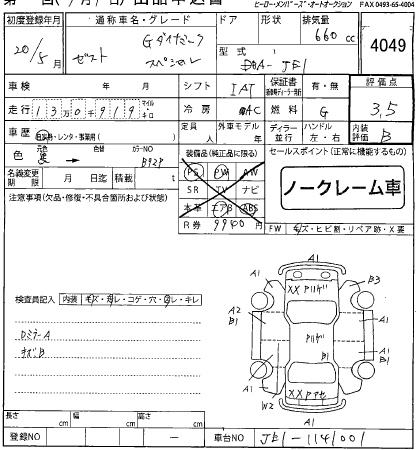 ヒーロー・メンバーズ・オートオークション FAX 0493-65-4004
初度登録年月 通称車名・グレード ドア 形状 排気量
20/5月 ゼスト Gダイナミック スペシャル 660cc
型式 DBA-JE1
4049
車検 年 月 シフト IAT 保証書 有・無 評価点
走行 13万0千919 マイル キロ 冷房 AC 燃料 G 3,5
車歴 自家用・レンタ・事業用( ) 定員 人 外車モデル 年 ディーラー 並行 ハンドル 左・右 内装評価 B
色 元色 黒 → 色替 カラーNO B92P
装備品(純正品に限る) セールスポイント(正常に機能するもの)
名義変更期限 月 日迄 積載 t
PS PW AW
SR TV ナビ
本革 エアB ABS
R券 9940円
ノークレーム車
注意事項(欠品・修復・不具合箇所および状態)
FW キズ・ヒビ割・リペア跡・X要
A1
A1 XX B3
検査員記入 内装 キズ・汚レ・コゲ・穴・凹レ・キレ
A2 B1 A1
DミラーA
B1
A1 XX A1
W2
A1
長さ cm 幅 cm 高さ cm
登録NO 車台NO JE1-1141001